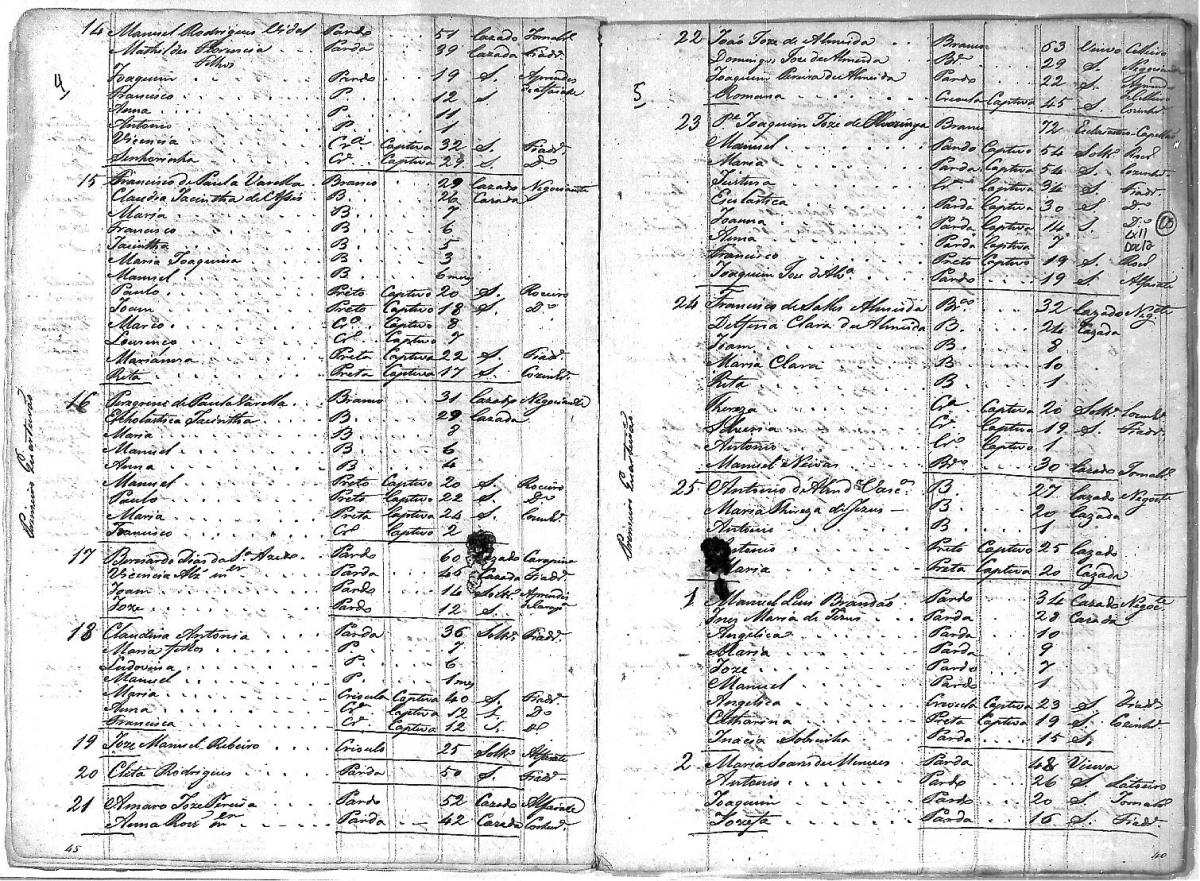 4
Primeiro Quarteirão
14 Manuel Rodrigues Vidal Pardo 51 Cazado Jornalr.
Mathildes Florencia Parda 39 Cazada Fiadr.
filhos
Joaquim Pardo 19 S. Aprendes
Francisco P. 12 S d'alfaiate
Anna P. 11
Antonio P. 1
Vicencia Cra. Captiva 32 S. Fiadr.
Senhorinha Cra. Captiva 29 S. Do
15 Francisco de Paula Varella Branco 29 Cazado Negociante
Claudia Jacintha de Assis B. 26 Cazada
Maria B. 7
Francisco B 6
Jacintha B 5
Maria Joaquina B. 3
Manuel B. 6 mez
Paulo Preto Captivo 20 S. Roceiro
Joam Preto Captivo 18 S. Do
Mario Cro. Captivo 8
Lourenço Cro. Captivo 7
Marianna Preta Captiva 22 S. Fiadr.
Rita Preta Captiva 17 S. Cozinhr.
16 de Paula Varella Branco 31 Cazado Negociante
Escholastica Jacintha B. 29 Cazada
Maria B 8
Manuel B 6
Anna B 4
Manuel Preto Captivo 20 S. Roceiro
Paulo Preto Captivo 22 S. Do
Maria Preta Captiva 24 S. Cozinhr.
Francisco Cro. Captivo 2
17 Bernardo Dias da Pardo 60 Cazado Carapina
Vicencia Alz mer Parda 45 Cazada Fiadr.
Joam Pardo 14 Soltr. Aprendes
Joze Pardo 12 S. de Carapa.
18 Claudina Antonia Parda 36 Soltr. Fiadr.
Maria filhos P 7
Ludovina P. 6
Manuel P. 1 mez
Maria Crioula Captiva 40 S. Fiadr.
Anna Cra. Captiva 12 S. Do
Francisca Cra. Captiva 12 S. Do
19 Joze Manuel Ribeiro Crioulo 25 Soltr. Alfaiate
20 Cleta Rodrigues Parda 50 S. Fiadr.
21 Amaro Joze Pereira Pardo 52 Cazado Alfaiate
Anna Roiz mer Parda 42 Cazada Cozinhr.
45
5
Primeiro Quarteirão
22 João Joze de Almeida Branco 63 Viuvo
Domingos Joze de Almeida Bo. 29 S. Negociante
Joaquim Pereira de Almeida Pardo 22 S.
Romana Crioula Captiva 45 S. Cozinhr.
23 Pe. Joaquim Joze de Branco 72 Capellão
Manuel Pardo Captivo 54 Soltr. Rocr.
Maria Parda Captiva 54 S. Cozinhr.
Cra. Captiva 34 S. Fiadr.
Escolastica Parda Captiva 30 S. Do
Joanna Parda Captiva 14 S. Do
Anna Parda Captiva 7
Francisco Preto Captivo 19 S. Rocr.
Joaquim Joze de Alma. Pardo 19 S. Alfaiate
24 Francisco de Salles Almeida Bco. 32 Cazado Negte
Delfina Clara de Almeida B. 24 Cazada
Joam B 8
Maria Clara B 10
Rita B 1
Thereza Ca. Captiva 20 Soltr. Cozinhr.
Cra. Captiva 19 S. Fiadr.
Antonio Cro. Captivo 1
Manuel Neivas Bco. 30 Cazado Jornalr.
25 Antonio de B 27 Cazado Negcte
Maria Thereza de Jezus B. 20 Cazada
Antonio B 1
Antonio Preto Captivo 25 Cazado
Maria Preta Captiva 20 Cazada
1 Manuel Luis Brandão Pardo 34 Cazado Negcte
Ines Maria de Jezus Parda 23 Cazada
Angelica Parda 10
Maria Parda 9
Joze Pardo 7
Manuel Pardo 1
Angelica Crioula Captiva 23 S. Fiadr.
Catharina Preta Captiva 19 S. Cozinhr.
Inacia Sobrinha Parda 15 S.
2 Maria Soares de Menezes Parda 48 Viuva
Antonio Pardo 26 S. Latoeiro
Joaquim Pardo 20 S. Jornalr.
Jozefa Parda 16 S. Fiadr.
40